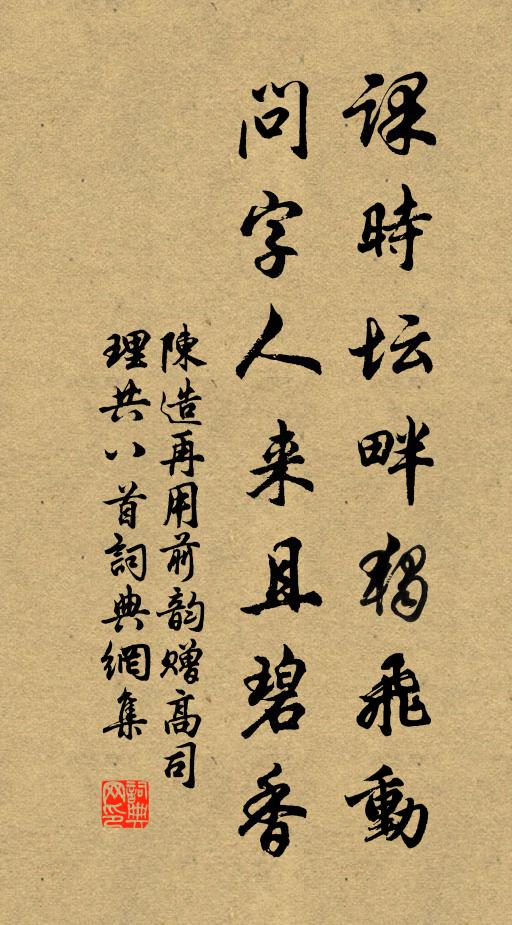 課時坛畔獨飛動
問字人来且碧香
陳造再用前韵贈高司
理共八首詞典網集
詞典网印